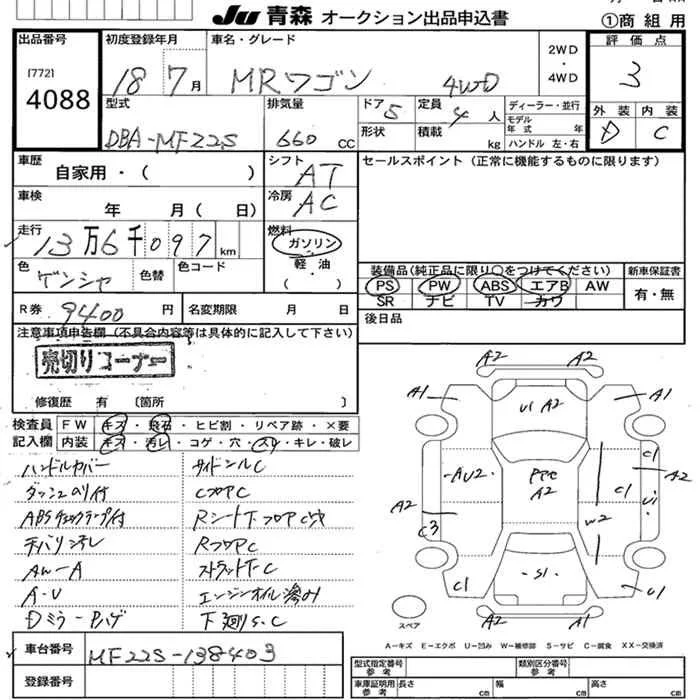 JU 青森 オークション出品申込書
①商組用
出品番号
[772]
4088
初度登録年月
18 7月
車名・グレード
MRワゴン 4WD
2WD
・
4WD
評価点
3
型式
DBA-MF22S
排気量
660 CC
ドア 5
定員 4人
形状
積載 kg
ディーラー・並行
モデル年式 年
ハンドル 左・右
外装 内装
D C
車歴
自家用・( )
シフト AT
セールスポイント(正常に機能するものに限ります)
車検
年 月( 日)
冷房 AC
走行
13万6千097km
燃料
ガソリン
軽・油
( )
色
色替
色コード
装備品(純正品に限り○をつけてください)
新車保証書
PS PW ABS エアB AW
有・無
SR ナビ TV カワ
R券 9400円
名変期限 月 日
後日品
注意事項申告欄(不具合内容等は具体的に記入して下さい)
売切りコーナー
修復歴 有 〔箇所 〕
検査員
記入欄
FW キズ・飛石・ヒビ割・リペア跡・×要
内装 キズ・汚レ・コゲ・穴・スレ・キレ・破レ
ハンドルカバー サイドシルC
ダッシュのり付 CフロアC
ABSチェックランプ付
RフロアC
AW-A ストラットF-C
A-U エンジンオイル滲み
Dミラー 下廻りS.C
A2 A2
A1 A1
U1 A2
AU2
A2
C1
C1
U1
A2 A2
C3
W2
C1
S1
U1
A2 A2
スペア
A-キズ E-エクボ U-凹み W-補修跡 S-サビ C-腐食 XX-交換済
車台番号
MF22S-138403
登録番号
型式指定番号
参考
類別区分番号
参考
車庫証明用
参考
長さ cm
幅 cm
高さ cm